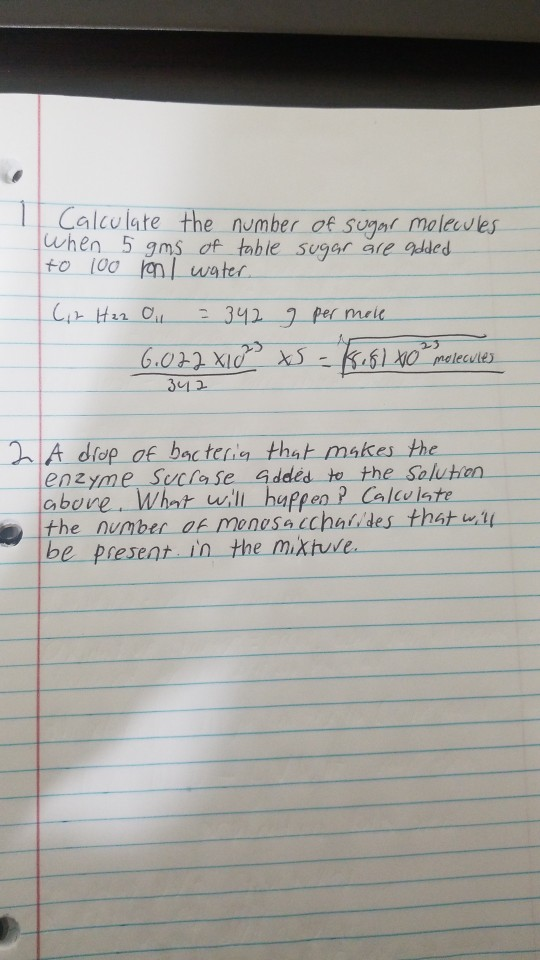 1 Calculate the number of sugar molecules
when 5 gms of table sugar are added
to 100 ml water.
C12 H22 O11 = 342 g per mole
6.022 x10^23 x5 = 8.81 x10^23 molecules
342
2 A drop of bacteria that makes the
enzyme sucrase added to the solution
above. What will happen? Calculate
the number of monosaccharides that will
be present in the mixture.